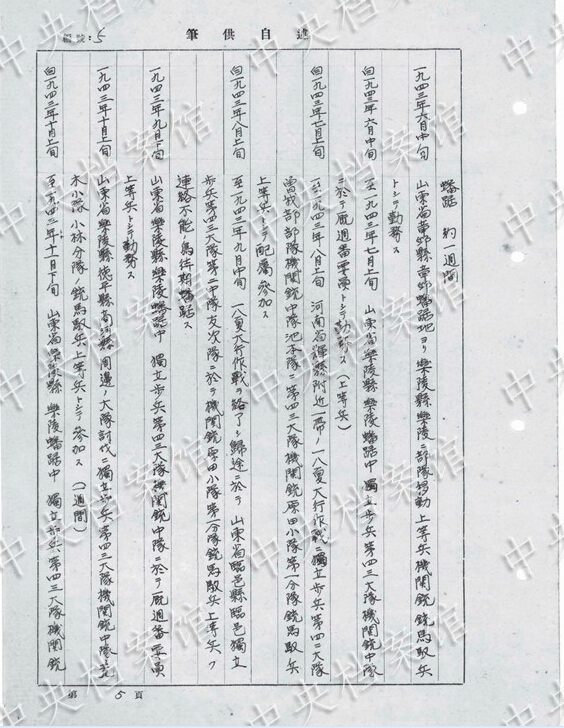 筆供自進
蟠踞 約一週間
一九四三年六月中旬 山東省章邱縣章邱蟠踞地ヨリ樂陵縣樂陵ニ部隊移動上等兵機関銃銃馬馭兵
トシテ勤務ス
自一九四三年六月中旬 至一九四三年七月上旬 山東省樂陵縣樂陵蟠踞中 獨立歩兵第四三大隊機関銃中隊
ニ於テ厩週番要員トシテ勤務ス(上等兵)
自一九四三年七月上旬 至一九四三年八月上旬 河南省輝縣附近一帶ノ一八夏太行作戰ニ獨立歩兵第四二大隊
曽我部部隊機関銃中隊池本隊ニ第四三大隊機関銃原田小隊第一分隊銃馬馭兵
上等兵トシテ配屬参加ス
自一九四三年八月上旬 至一九四三年九月中旬 一八夏太行作戰ヲ終了シ歸途ニ於テ 山東省臨邑縣臨邑獨立
歩兵第四三大隊第二中隊 隊ニ於テ機関銃原田小隊第一分隊銃馬馭兵上等兵
連絡不能ノ為待期蟠踞ス
一九四三年九月下旬 山東省樂陵縣樂陵蟠踞中 獨立歩兵第四三大隊機関銃中隊ニ於テ厩週番要員
上等兵トシテ勤務ス
一九四三年十月上旬 山東省樂陵縣德平縣商河縣周邊ノ大隊討伐ニ獨立歩兵第四三大隊機関銃中隊
木小隊 小林分隊 銃馬馭兵上等兵トシテ参加ス(一週間)
自一九四三年十月上旬 至一九四三年十一月下旬 山東省樂陵縣 樂陵蟠踞中 獨立歩兵第四三大隊機関銃
第 5 頁
中央档案馆